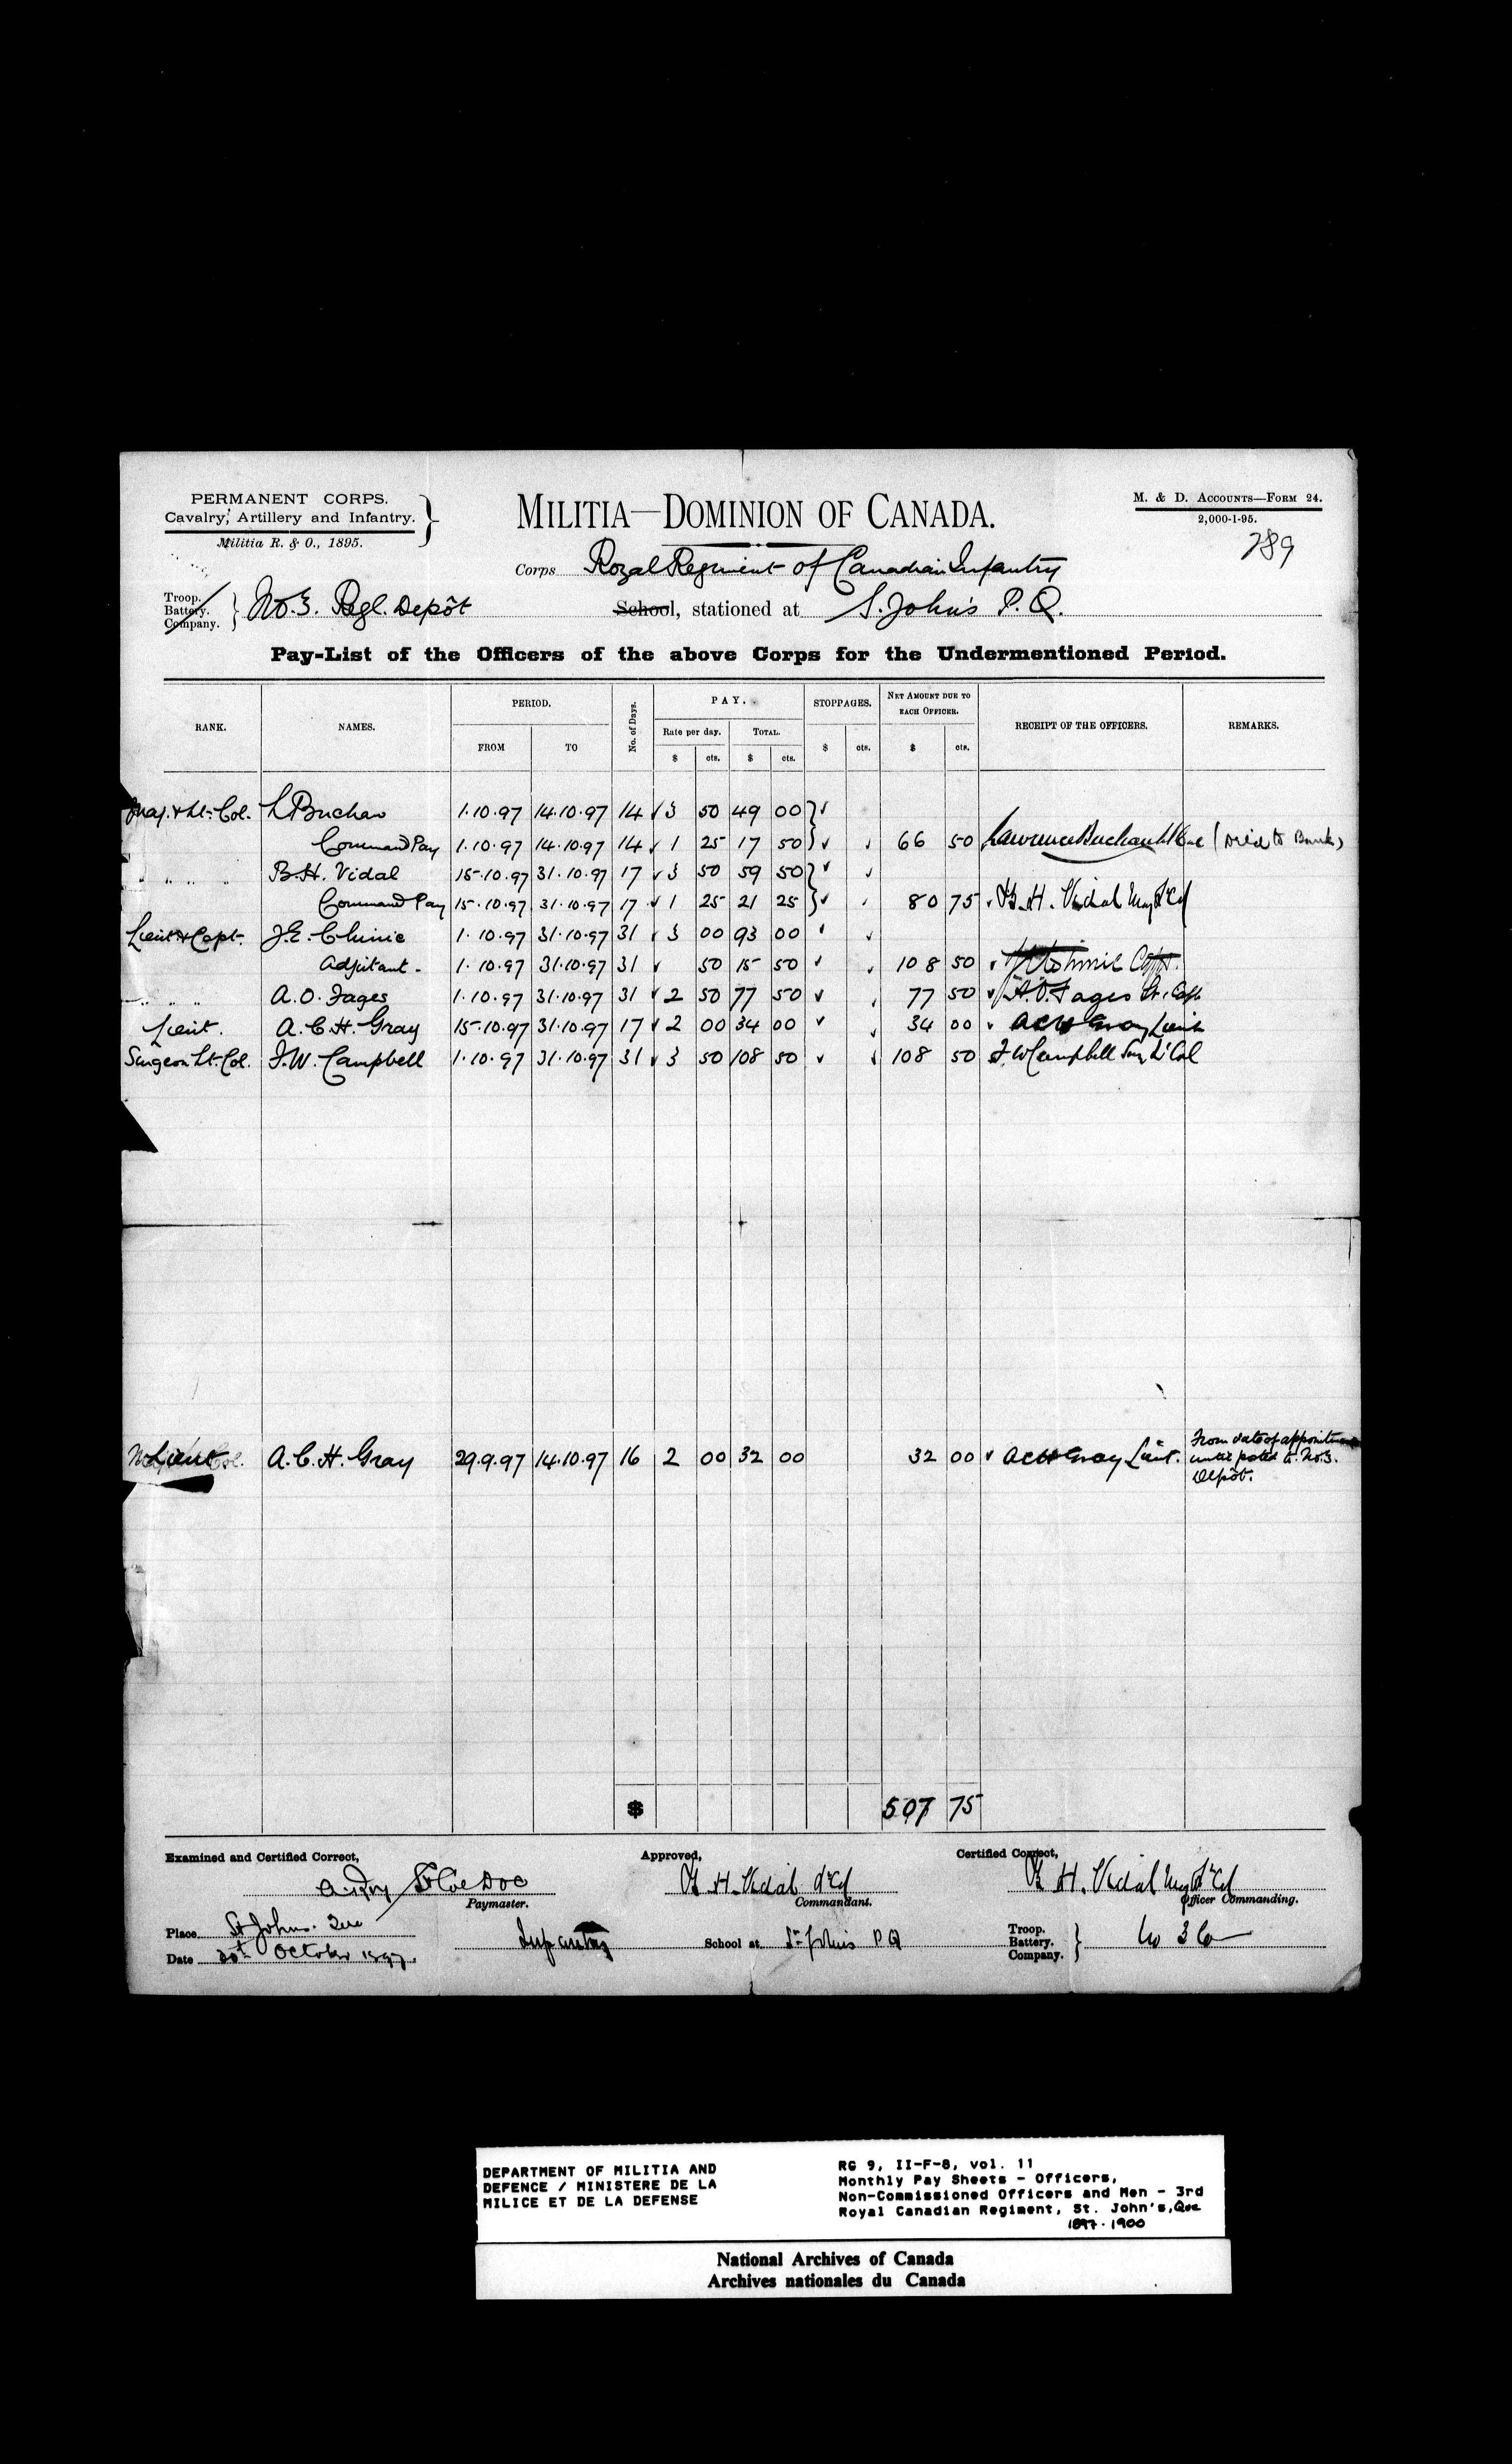 PERMANENT CORPS.
Cavalry, Artillery and Infantry.
Militia R. & O., 1895.
MILITIA—DOMINION OF CANADA.
M. & D. ACCOUNTS—FORM 24.
2,000-1-95.
789
Corps Royal Regiment of Canadian Infantry
Troop.
Battery.
Company.
No. 3. Regl. Depôt School, stationed at S. John's P.Q.
Pay-List of the Officers of the above Corps for the Undermentioned Period.
RANK. NAMES. PERIOD. No. of Days. PAY. STOPPAGES. NET AMOUNT DUE TO EACH OFFICER. RECEIPT OF THE OFFICERS. REMARKS.
FROM TO Rate per day. TOTAL.
$ cts. $ cts. $ cts. $ cts.
Maj. & Lt.-Col. L Buchan 1.10.97 14.10.97 14 3 50 49 00
Command Pay 1.10.97 14.10.97 14 1 25 17 50 66 50 Lawrence Buchan Lt Col
" " " " B.H. Vidal 15.10.97 31.10.97 17 3 50 59 50
Command Pay 15.10.97 31.10.97 17 1 25 21 25 80 75 B. H. Vidal Maj
Lieut & Capt. J.E. Chinic 1.10.97 31.10.97 31 3 00 93 00
Adjutant. 1.10.97 31.10.97 31 50 15 50 108 50 Chinic Capt.
" " " A.O. Fages 1.10.97 31.10.97 31 2 50 77 50 77 50 A.O. Fages Lt. Capt
Lieut. A.C.H. Gray 15.10.97 31.10.97 17 2 00 34 00 34 00 ACH Gray Lieut
Surgeon Lt. Col. F.W. Campbell 1.10.97 31.10.97 31 3 50 108 50 108 50 F. W Campbell Surg Lt Col
Lieut A.C.H. Gray 29.9.97 14.10.97 16 2 00 32 00 32 00 ACH Gray Lieut. From date of appointment
until posted to No.3.
Depôt.
$ 507 75
Examined and Certified Correct, Approved, Certified Correct,
B. H. Vidal B. H. Vidal Maj
Paymaster. Commandant. Officer Commanding.
Place St Johns. Que
Date October 1897.
Infantry School at St Johns P Q
Troop.
Battery.
Company.
No 3 Co
DEPARTMENT OF MILITIA AND
DEFENCE / MINISTERE DE LA
MILICE ET DE LA DEFENSE
RG 9, II-F-8, vol. 11
Monthly Pay Sheets - Officers,
Non-Commissioned Officers and Men - 3rd
Royal Canadian Regiment, St. John's, Que
1897-1900
National Archives of Canada
Archives nationales du Canada